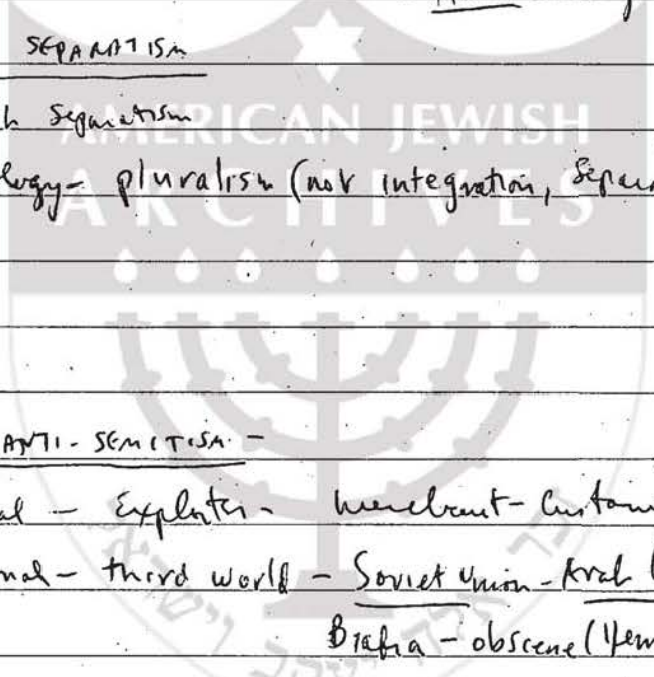 SEPARATISM
h Separatism
AMERICAN JEWISH
logy - pluralism (not integration, Separ
ARCHIVES
ANTI-SEMITISM -
al - Exploiter - merchant - Custom
nal - third world - Soviet Union - Arab
Biafra - obscene (Yem